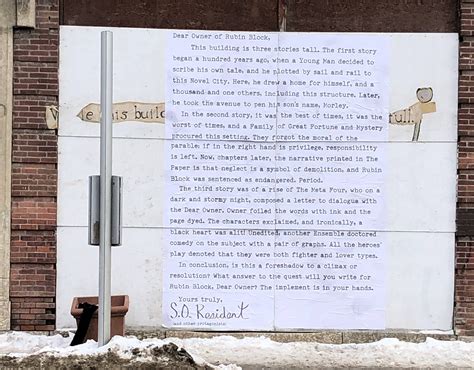 Dear Owner of Rubin Block,
This building is three stories tall. The first story
began a hundred years ago, when a Young Man decided to
scribe his own tale, and he plotted by sail and rail to
this Novel City. Here, he drew a home for himself, and a
thousand and one others, including this structure. Later,
he took the avenue to pen his son's name, Morley.
In the second story, it was the best of times, it was the
worst of times, and a Family of Great Fortune and Mystery
procured this setting. They forgot the moral of the
parable; if in the right hand is privilege, responsibility
is left. Now, chapters later, the narrative printed in The
Paper is that neglect is a symbol of demolition, and Rubin
Block was sentenced as endangered. Period.
The third story was of a rise of The Meta Four, who on a
dark and stormy night, composed a letter to dialogue with
the Dear Owner. Owner foiled the words with ink and the
page dyed. The characters exclaimed, and ironically, a
black heart was alit! Unedited, another Ensemble doctored
comedy on the subject with a pair of graphs. All the heroes'
play denoted that they were both fighter and lover types.
In conclusion, is this a foreshadow to a climax or
resolution? What answer to the quest will you write for
Rubin Block, Dear Owner? The implement is in your hands.
Yours truly,
S.O. Resident
and other protagonists
this build